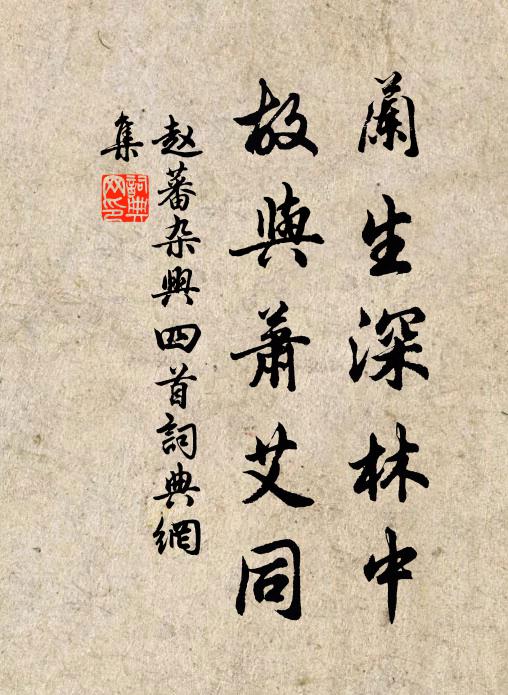 蘭生深林中
故與蕭艾同
赵蕃杂興四首詞典網
集
詞典
网印